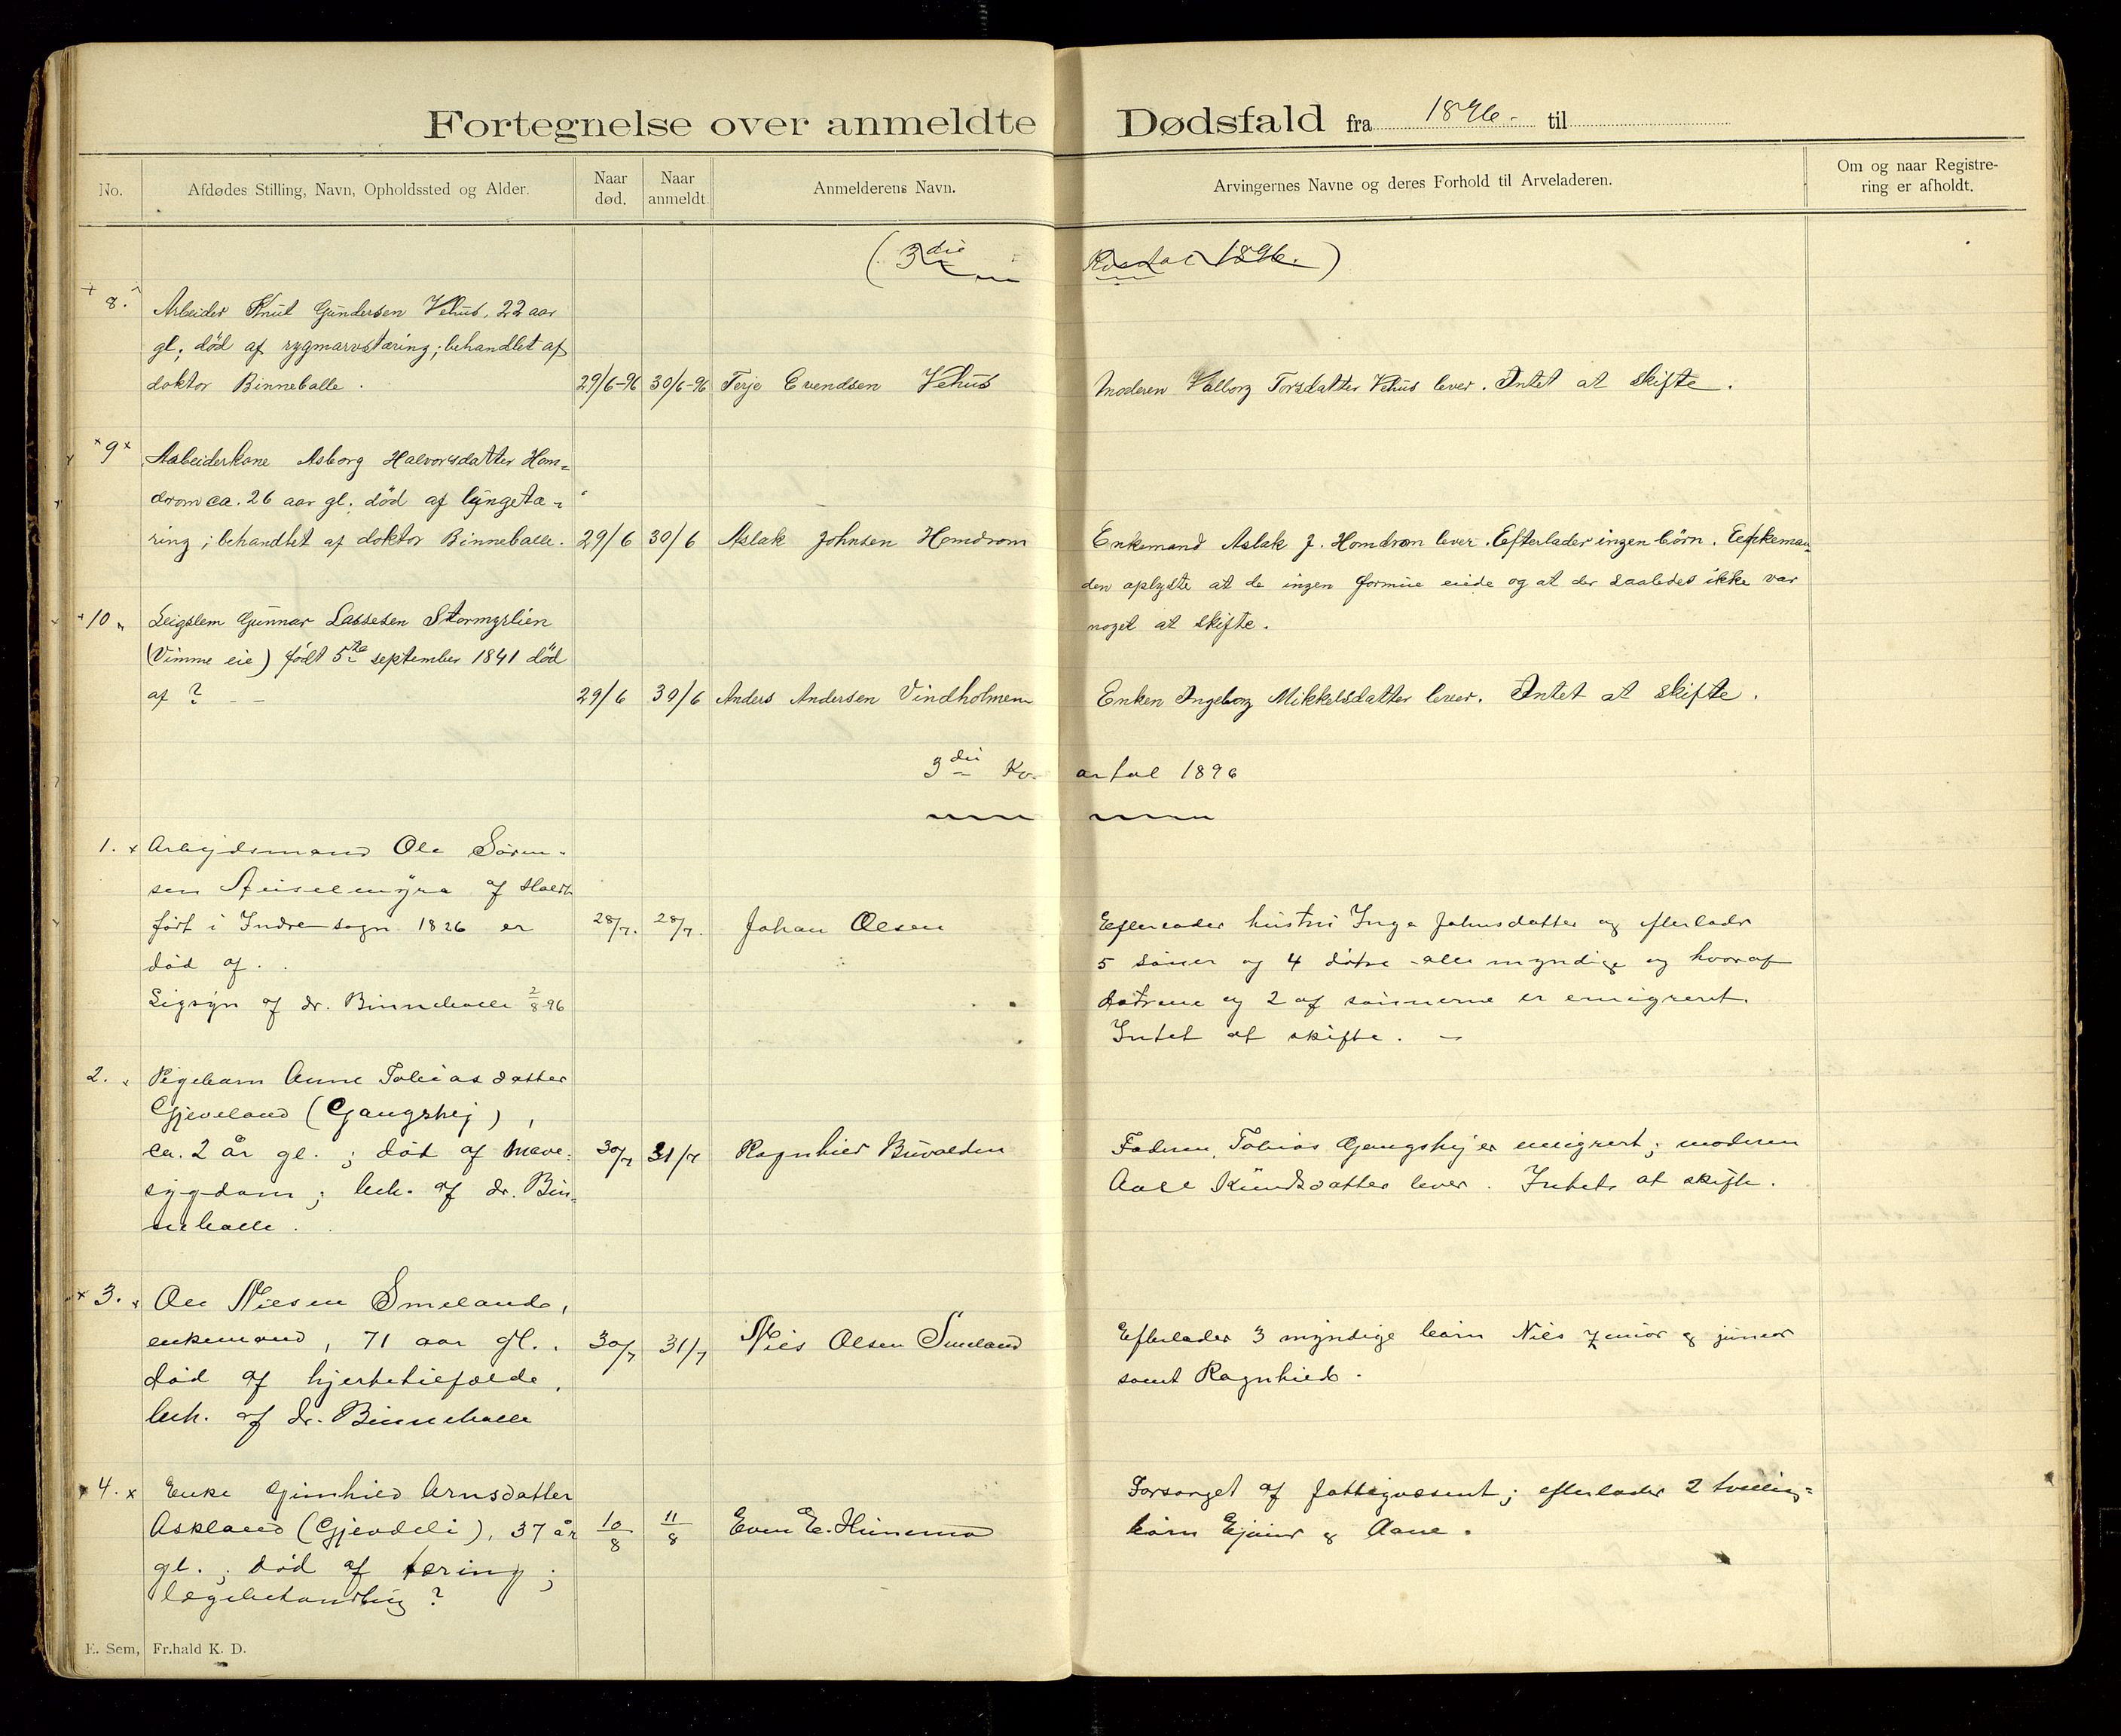 Fortegnelse over anmeldte Dødsfald fra 1896.- til
No.
Afdødes Stilling, Navn, Opholdssted og Alder.
Naar død.
Naar anmeldt.
Anmelderens Navn.
Arvingernes Navne og deres Forhold til Arveladeren.
Om og naar Registre-
ring er afholdt.
(3die Kvartal 1896.)
8. Arbeider Knut Gundersen Vehus, 22 aar
gl; död af rygmarvstæring; behandlet af
doktor Binneballe. 29/6-96 30/6-96 Terje Evendsen Vehus Moderen Valborg Torsdatter Vehus lever. Intet at skifte.
9 Arbeiderkone Asborg Halvorsdatter Hom=
drom ca. 26 aar gl. död af lungetæ-
ring; behandlet af doktor Binneballe. 29/6 30/6 Aslak Johnsen Homdrom Enkemand Aslak J. Homdrom lever. Efterlader ingen börn. Enkeman=
den oplyste at de ingen formue eiede og at der saaledes ikke var
noget at skifte.
10 Leigslem Gunnar Lassesen Stormyrlien
(Vimme eie) födt 5te september 1841 död
af ? - - 29/6 30/6 Anders Andersen Vindholmen Enken Ingeborg Mikkelsdatter lever. Intet at skifte.
3die Kvartal 1896
1. Arbejdsmand Ole Sören-
sen af Holt
född i Indresogn 1826 er 28/7. 28/7. Johan Olsen Efterlader hustru Inge Johnsdatter og efterlader
död af . . 5 sönner og 4 dötre - alle myndige og hvoraf
Ligsyn af dr. Binneballe 2/8-96 dötrene og 2 af sönnerne er emigreret.
Intet at skifte. -
2. Pigebarn Anne Tobiasdatter
Gjeveland (Gangshej),
ca. 2 år gl.; död af mave- 30/7 31/7 Ragnhild Buvolden Faderen, Tobias Gangshej er emigrert; moderen
sygdom; beh. af dr. Bin= Aase Knudsdatter lever. Intet at skifte.
neballe.
3. Ole Nilsen Smeland,
enkemand, 71 aar gl., 30/7 31/7 Nils Olsen Smeland Efterlader 3 myndige börn Nils senior og junior
död af hjertetilfælde, samt Ragnhild.
beh. af dr. Binneballe
4. Enke Gunhild Arnsdatter Forsørget af fattigvæsent; efterlader 2 tvilling=
Askland (Gjevdeli), 37 år 10/8 11/8 Even E. börn Ejvind og Aane.
gl.; död af tæring;
lægebehandling?
E. Sem, Fr.hald K. D.